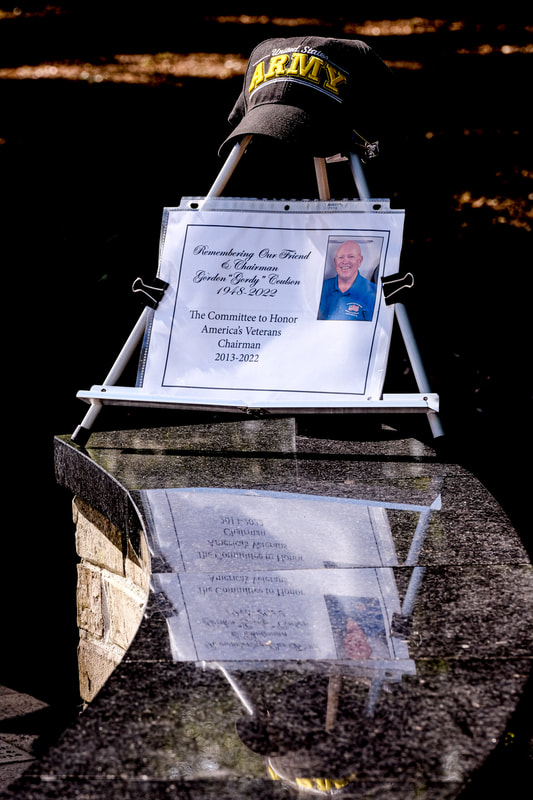 United States
ARMY
Remembering Our Friend
& Chairman
Gordon "Gordy" Coulson
1948-2022
The Committee to Honor
America's Veterans
Chairman
2013-2022